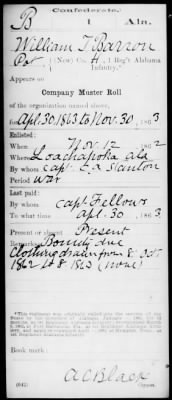 Confederate.
B 1 Ala.
William T Barron
Pvt (New) Co. H, 1 Reg't Alabama
Infantry.*
Appears on
Company Muster Roll
of the organization named above,
for Apl. 30. 1863 to Nov. 30, 1863
Enlisted:
When Nov 12 1862
Where Loachapoka Ala
By whom Capt. Stanton
Period War
Last paid:
By whom Capt. Fellows
To what time Apl. 30 1863
Present or absent Present
Remarks: Bounty due
Clothing drawn from 8 Oct
1862 to 8 1863 (none)
Book mark:
(642) A C Black
Copyist.